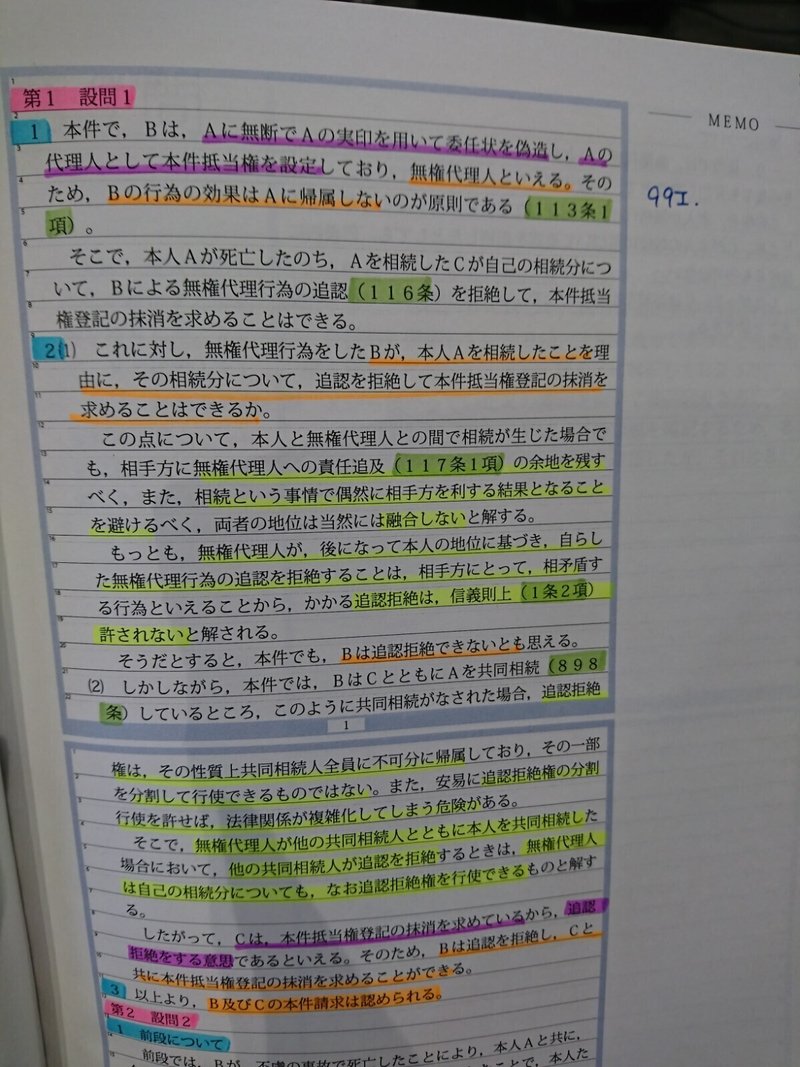 第1 設問1
1 本件で，Bは，Aに無断でAの実印を用いて委任状を偽造し，Aの
代理人として本件抵当権を設定しており，無権代理人といえる。その
ため，Bの行為の効果はAに帰属しないのが原則である（113条1
項）。
そこで，本人Aが死亡したのち，Aを相続したCが自己の相続分につ
いて，Bによる無権代理行為の追認（116条）を拒絶して，本件抵当
権登記の抹消を求めることはできる。
2⑴ これに対し，無権代理行為をしたBが，本人Aを相続したことを理
由に，その相続分について，追認を拒絶して本件抵当権登記の抹消を
求めることはできるか。
この点について，本人と無権代理人との間で相続が生じた場合で
も，相手方に無権代理人への責任追及（117条1項）の余地を残す
べく，また，相続という事情で偶然に相手方を利する結果となること
を避けるべく，両者の地位は当然には融合しないと解する。
もっとも，無権代理人が，後になって本人の地位に基づき，自らし
た無権代理行為の追認を拒絶することは，相手方にとって，相矛盾す
る行為といえることから，かかる追認拒絶は，信義則上（1条2項）
許されないと解される。
そうだとすると，本件でも，Bは追認拒絶できないとも思える。
⑵ しかしながら，本件では，BはCとともにAを共同相続（898
条）しているところ，このように共同相続がなされた場合，追認拒絶
1
権は，その性質上共同相続人全員に不可分に帰属しており，その一部
を分割して行使できるものではない。また，安易に追認拒絶権の分割
行使を許せば，法律関係が複雑化してしまう危険がある。
そこで，無権代理人が他の共同相続人とともに本人を共同相続した
場合において，他の共同相続人が追認を拒絶するときは，無権代理人
は自己の相続分についても，なお追認拒絶権を行使できるものと解す
る。
したがって，Cは，本件抵当権登記の抹消を求めているから，追認
拒絶をする意思であるといえる。そのため，Bは追認を拒絶し，Cと
共に本件抵当権登記の抹消を求めることができる。
3 以上より，B及びCの本件請求は認められる。
第2 設問2
1 前段について
前段では，Bが，不慮の事故で死亡したことにより，本人Aと共に，
MEMO
99I.